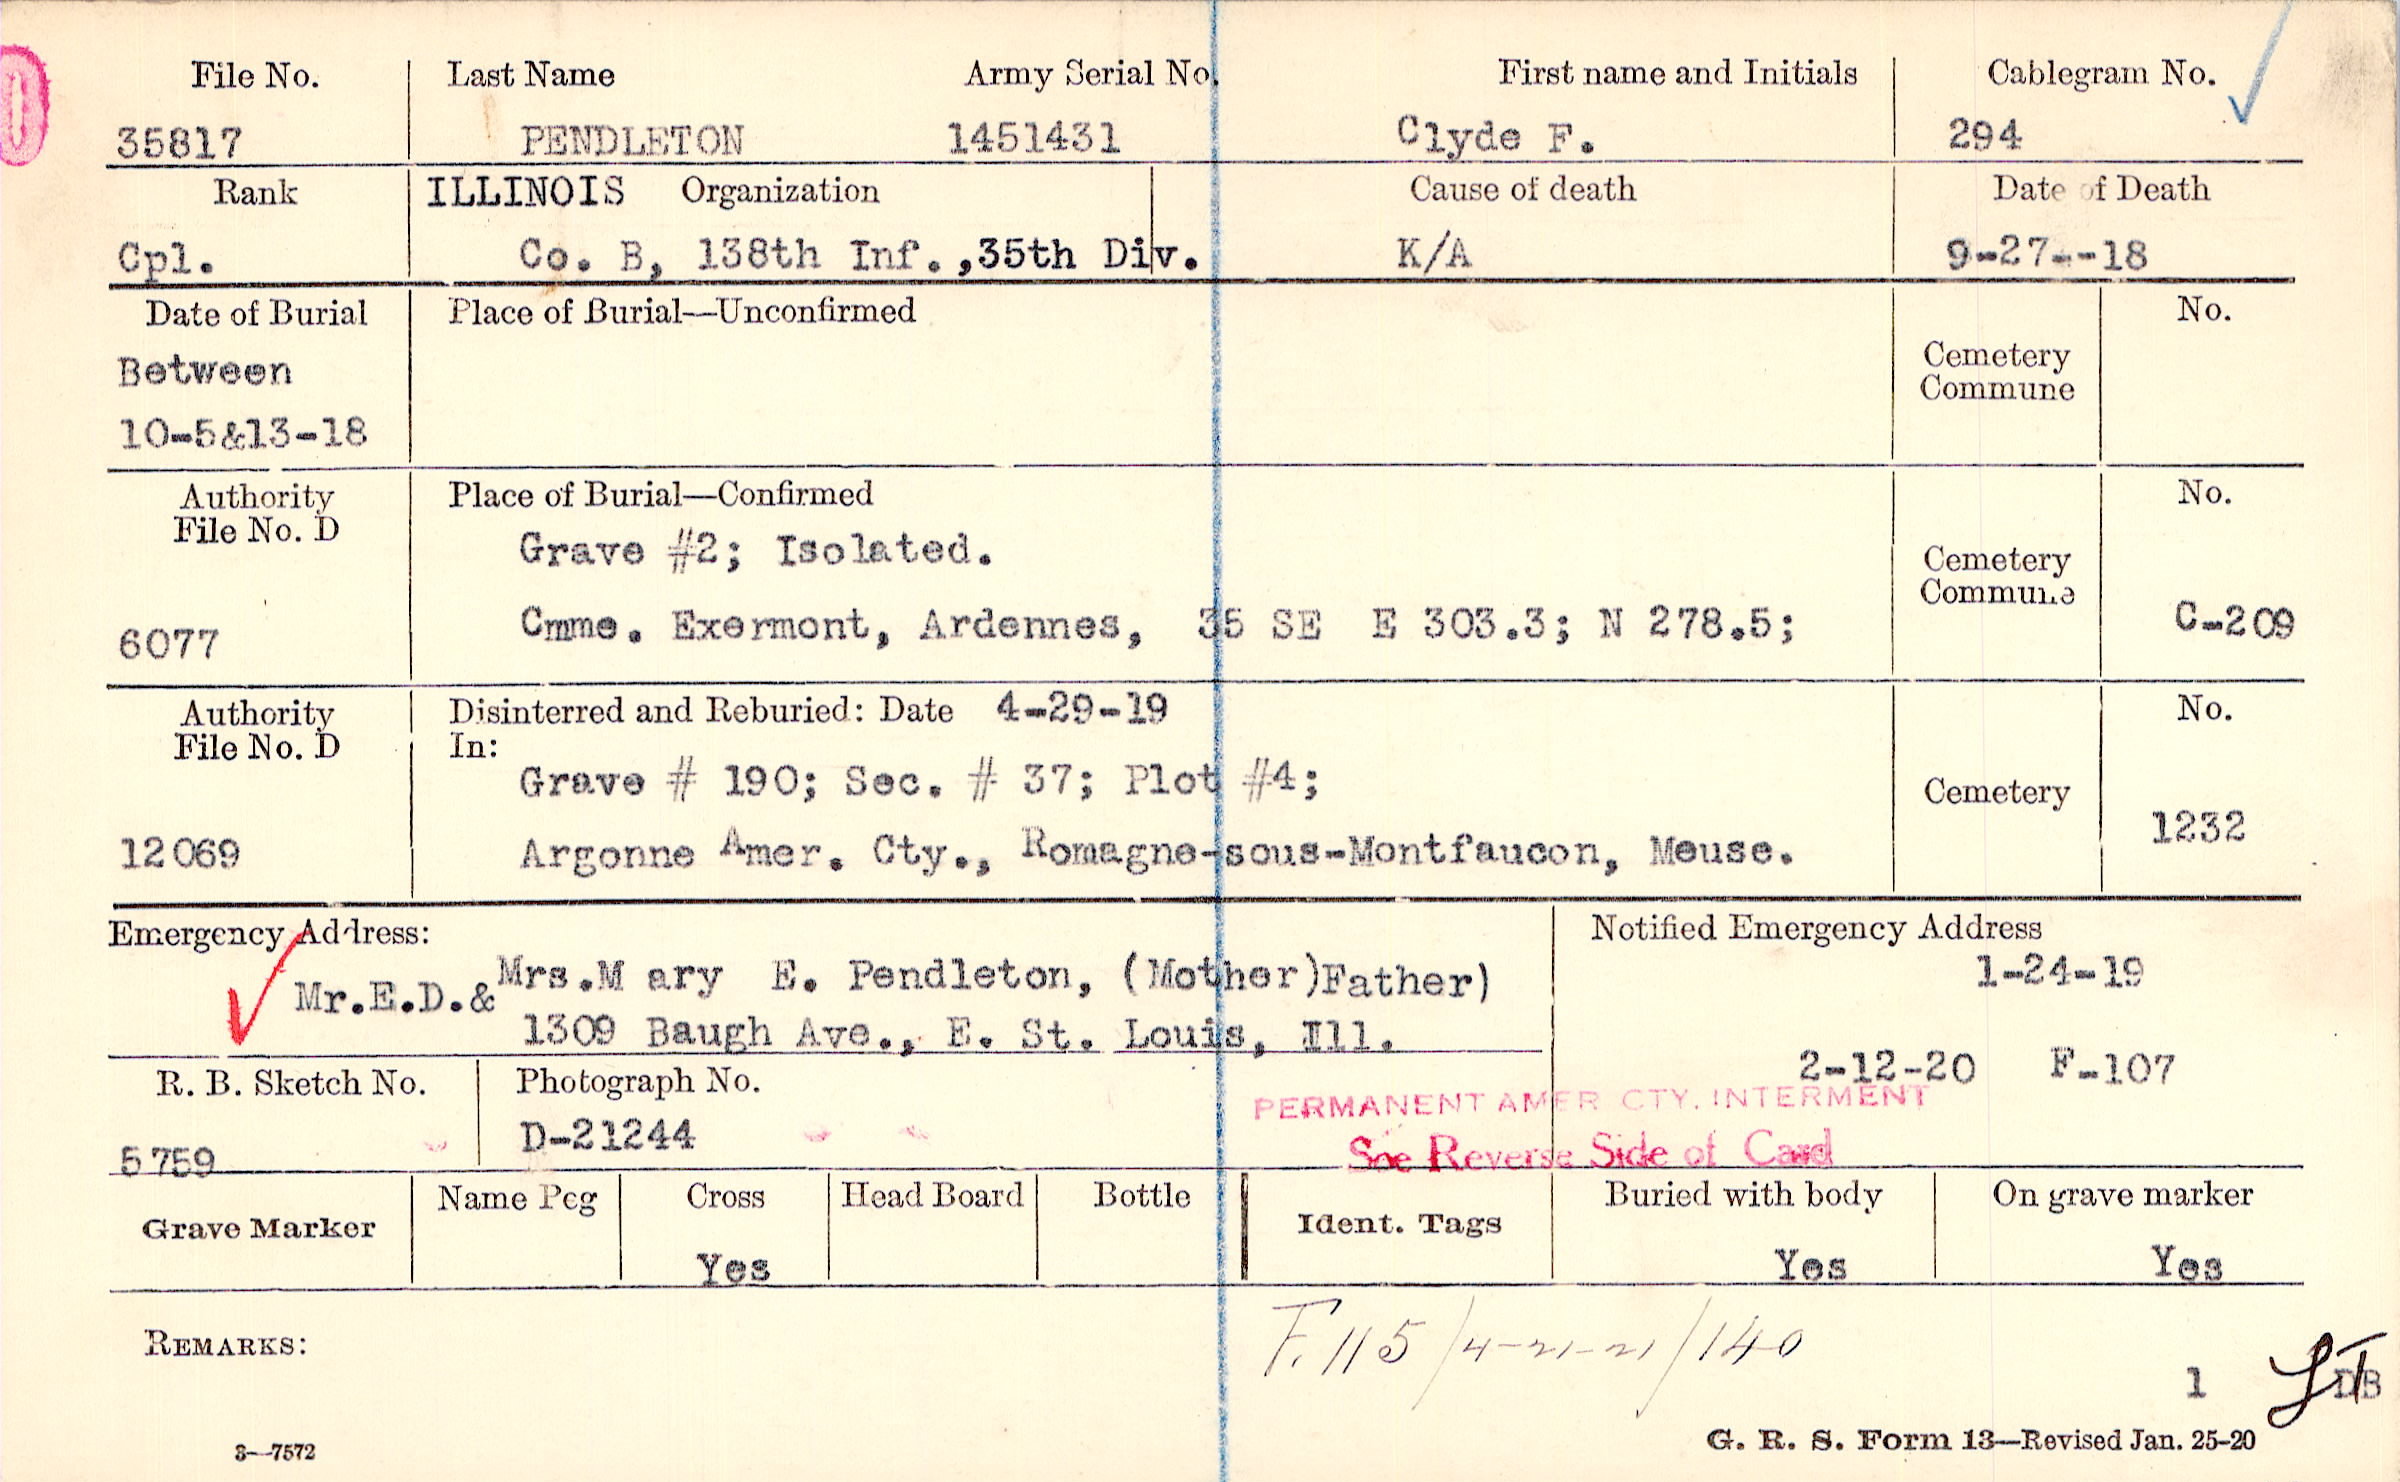 File No. Last Name Army Serial No. First name and Initials Cablegram No.
35817 PENDLETON 1451431 Clyde F. 294
Rank ILLINOIS Organization Cause of death Date of Death
Cpl. Co. B, 138th Inf.,35th Div. K/A 9-27--18
Date of Burial Place of Burial—Unconfirmed No.
Between Cemetery
Commune
10-5&13-18
Authority Place of Burial—Confirmed No.
File No. D
Grave #2; Isolated. Cemetery
Commune
6077 Cmme. Exermont, Ardennes, 35 SE E 303.3; N 278.5; C-209
Authority Disinterred and Reburied: Date 4-29-19 No.
File No. D In:
Grave # 190; Sec. # 37; Plot #4; Cemetery
12069 Argonne Amer. Cty., Romagne-sous-Montfaucon, Meuse. 1232
Emergency Address: Notified Emergency Address
Mr.E.D.& Mrs.M ary E. Pendleton, (Mother)Father) 1-24-19
1309 Baugh Ave., E. St. Louis, Ill.
2-12-20 F-107
R. B. Sketch No. Photograph No.
PERMANENT AMER CTY. INTERMENT
5759 D-21244 See Reverse Side of Card
Grave Marker Name Peg Cross Head Board Bottle Ident. Tags Buried with body On grave marker
Yes Yes Yes
REMARKS: F. 115/4-21-21/140
1 DB
3—7572 G. R. S. Form 13—Revised Jan. 25-20